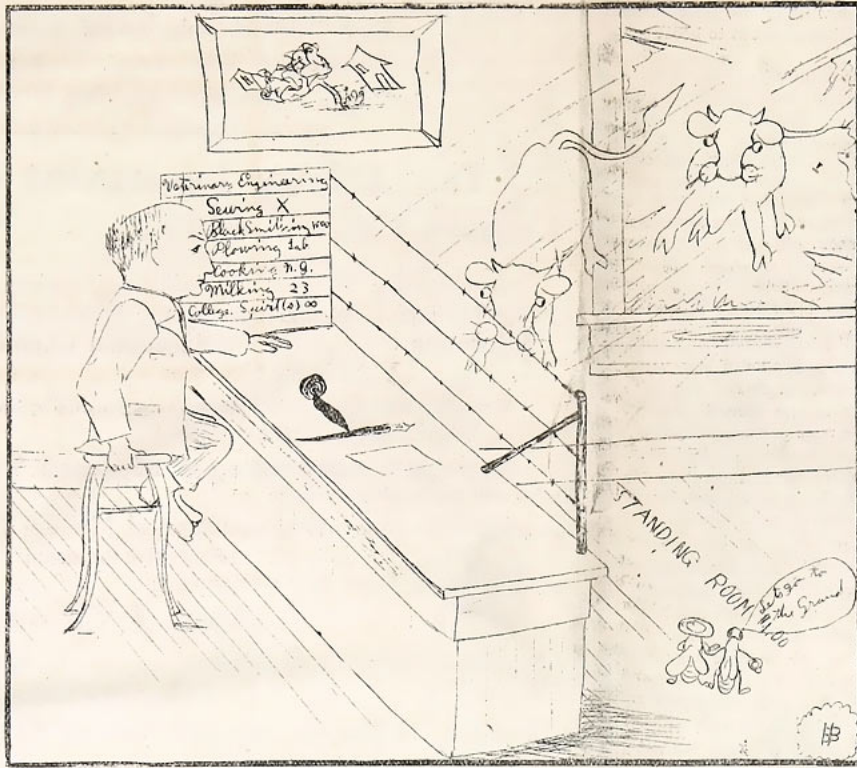 Veterinary Engineering
Sewing X
BlackSmithing
Plowing Lab
Cooking n.g.
Milking 23
College Spirit(s) 00
STANDING ROOM 1.00
Lets go to
the Grand